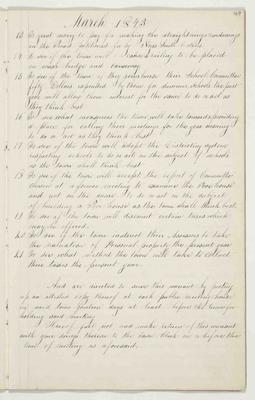 March 1843
to pay for making the straightening &
on the road petitioned for by & others
14 To see if the town will railing to be placed
on bridge and causeway
15 To see if the town will their School Committee
fifty Dollars expended by them for summer schools the past
year will allow them interest for the same to do or act as
they think best
16 To see what measures the town will take towards providing
a place for calling town meetings for the year ensuing
to do or act as they think best
17 To see if the town will adopt the Districting System
respecting schools to do or act on the subject of schools
as the town shall think best
18 To see if the town will accept the report of Committee
chosen at a former meeting to examine the Poor house
and act on the same to do or act on the subject
of building a Poor house as the town shall think best
19 To see if the town will discount certain taxes which
may be offered
20 To see if the town instruct their Assessors to take
the valuation of Personal property the present year
21 To see what method the town will take to collect
their taxes the present year.
And are directed to serve this warrant by posting
up an attested copy thereof at each public meeting house
in said town fourteen days at least before the time for
holding said meeting
Hereof fail not and make return of this warrant
with your doings thereon to the town Clerk on or before the
time of meeting as aforesaid.